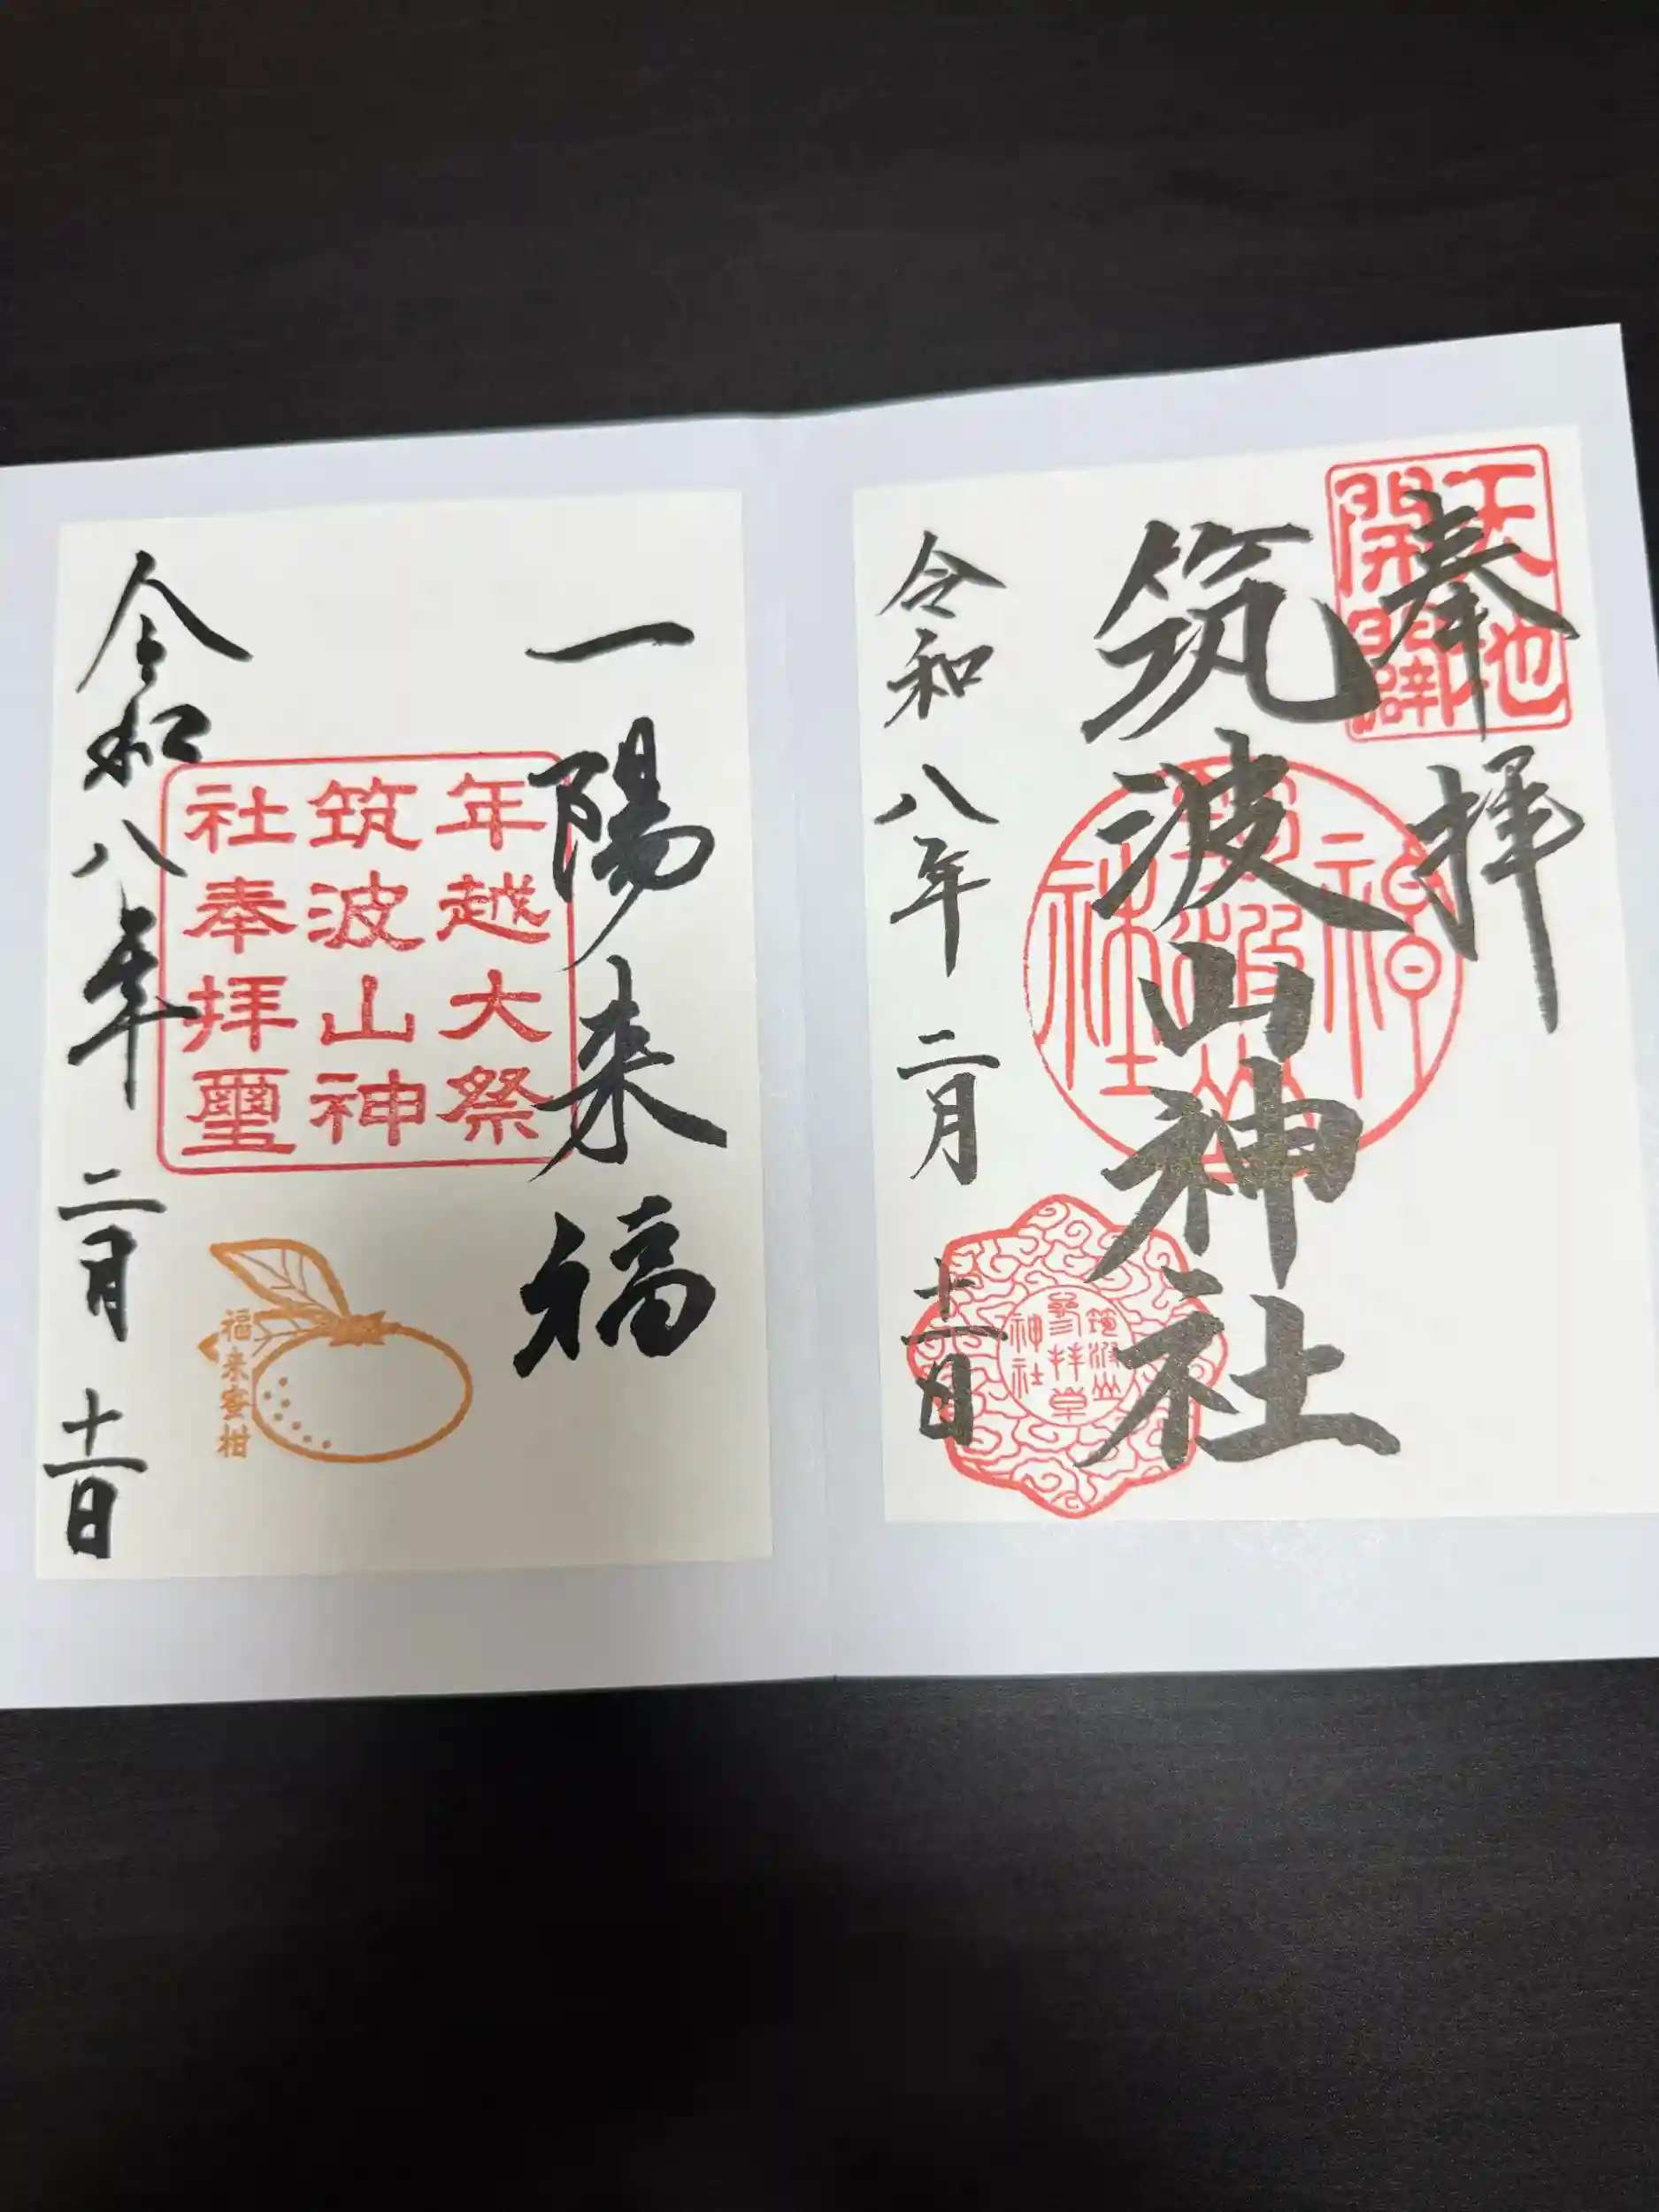 奉拝
天地
開闢
筑波山神社
筑波山
参拝章
神社
令和八年二月十一日
一陽来福
年越大祭
筑波山神
社奉拝璽
福来蜜柑
令和八年二月十一日